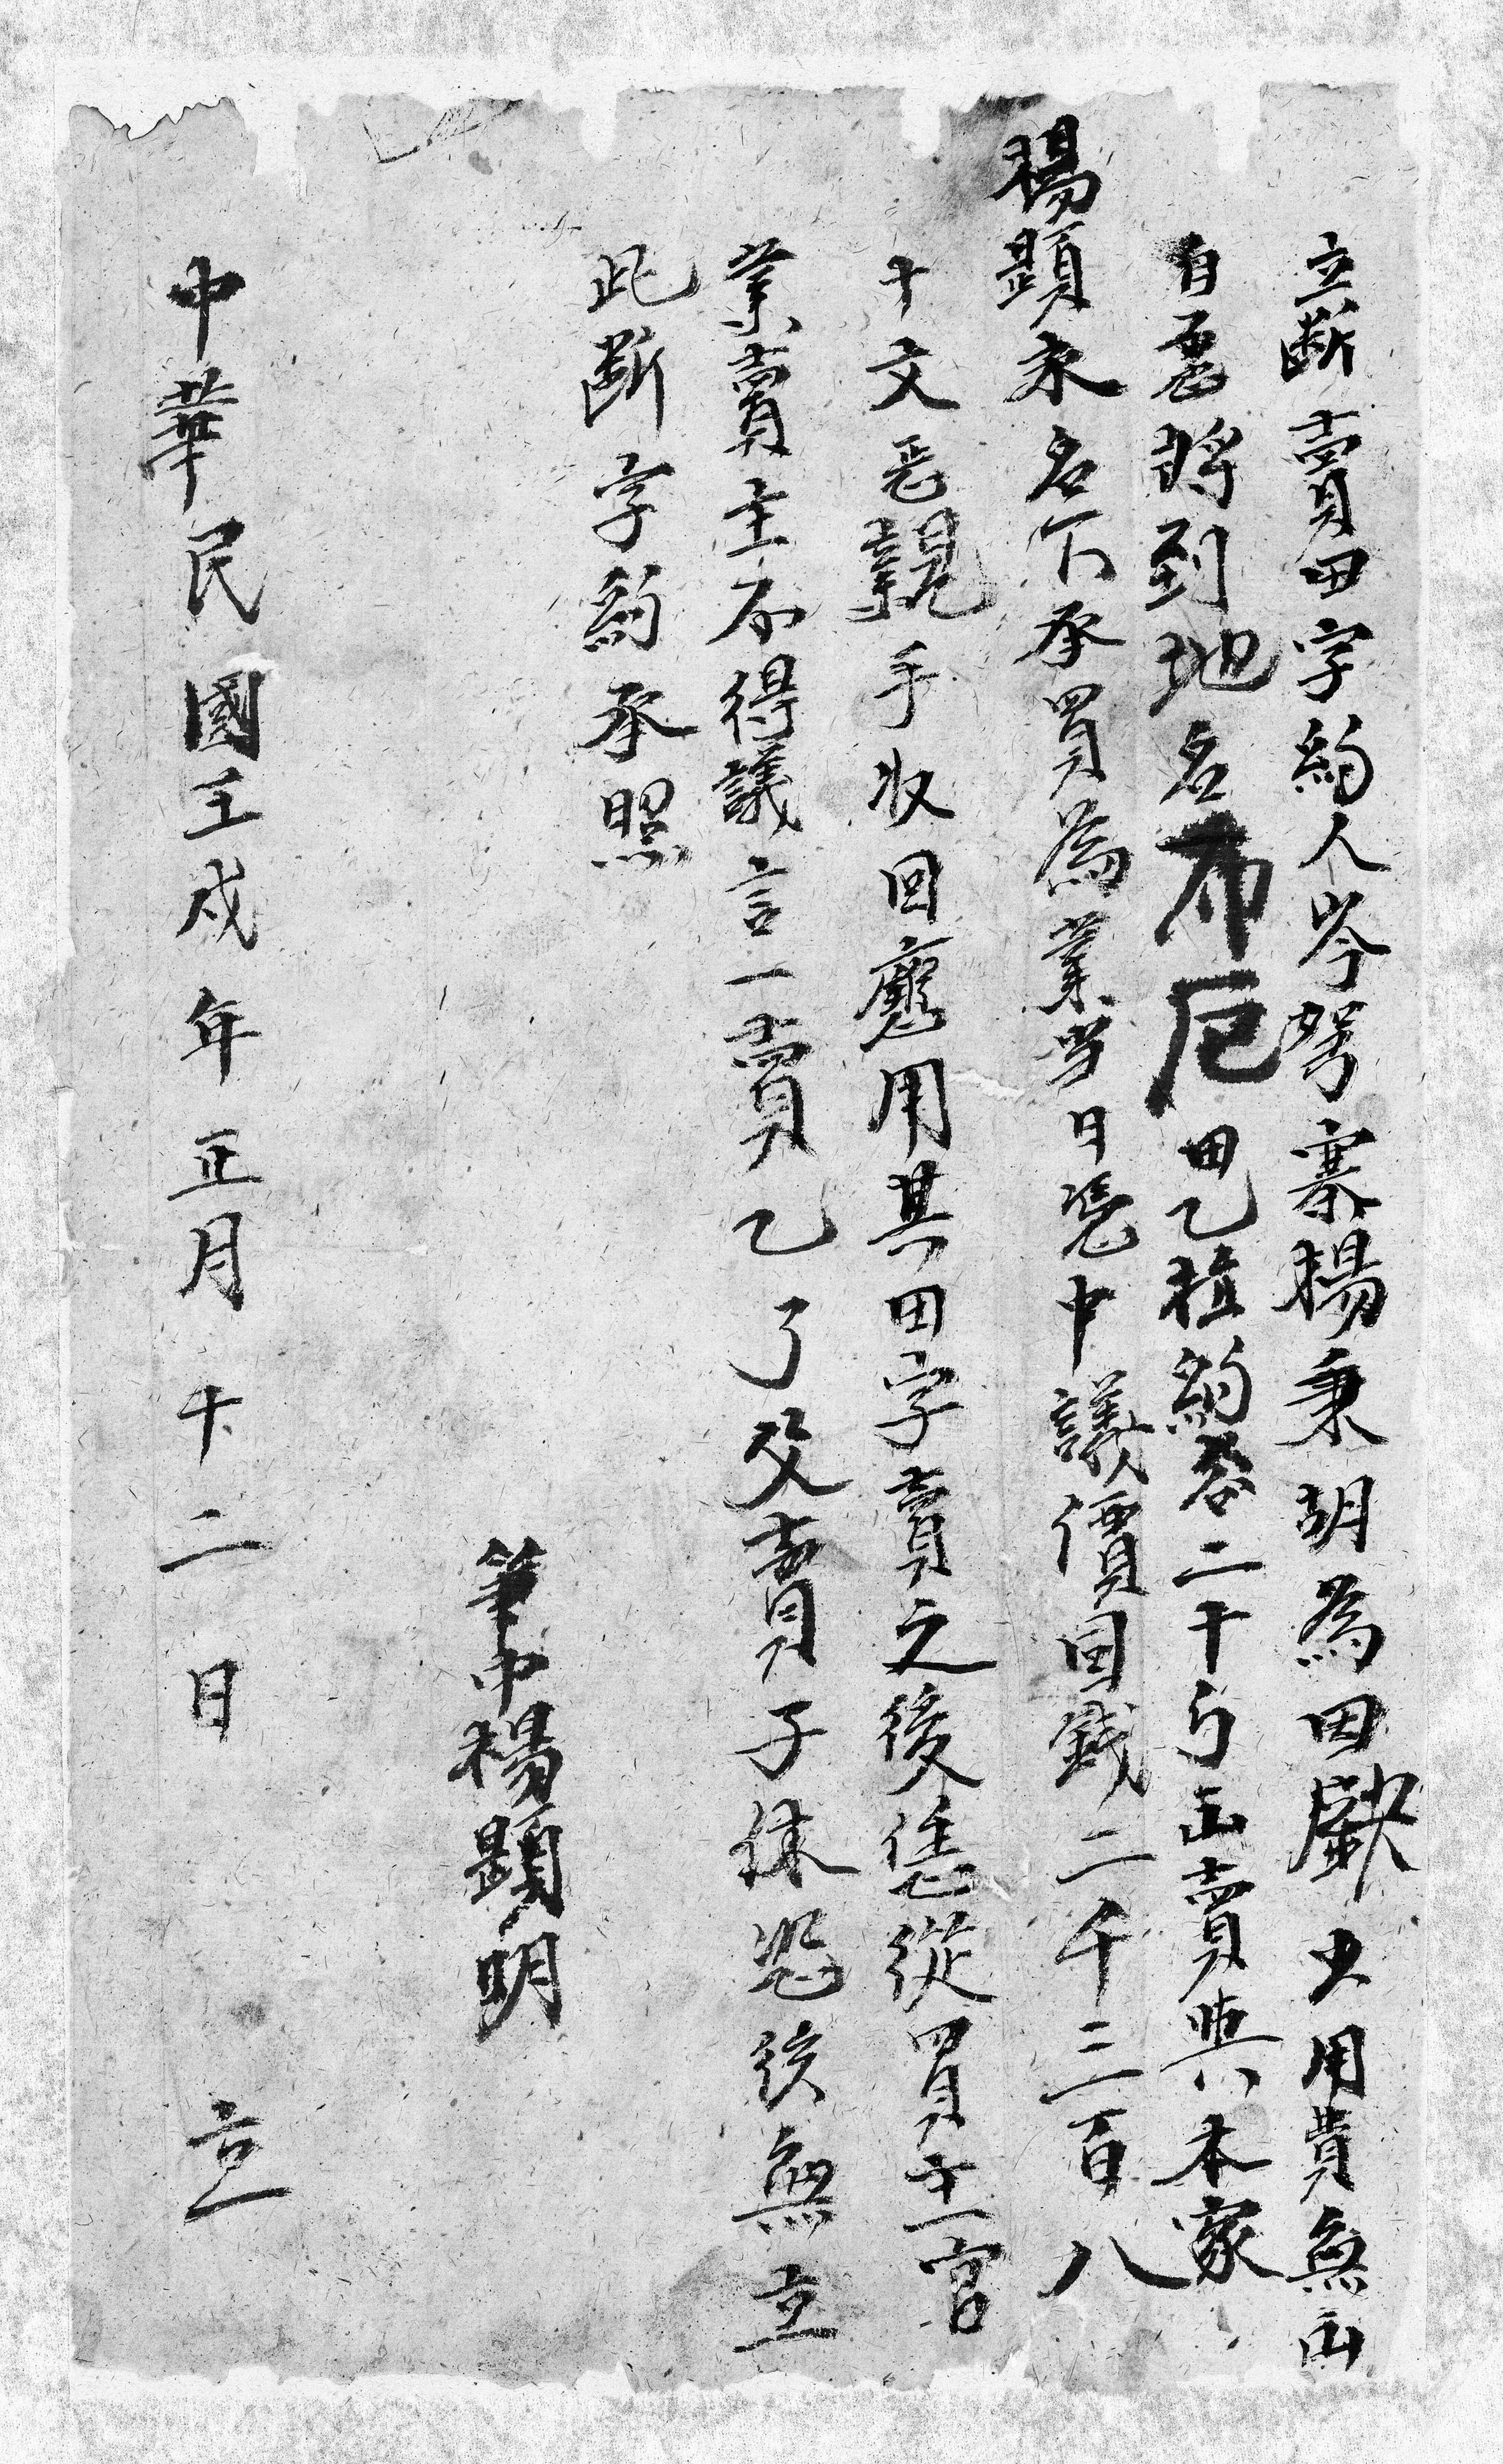 立断賣田字約人岑努寨楊秉胡為因缺少用費無出
自愿將到地名布厄田乙坵約谷二十勻出賣與本家
楊顕永名下承買為業当日凴中議價囬錢二千三百八
十文悉親手收回應用其田字賣之後恁從買主官
業賣主不得議言一賣乙了父賣子休恐後無立
此断字約承照
筆中楊顕明
中華民國壬戌年正月十二日立